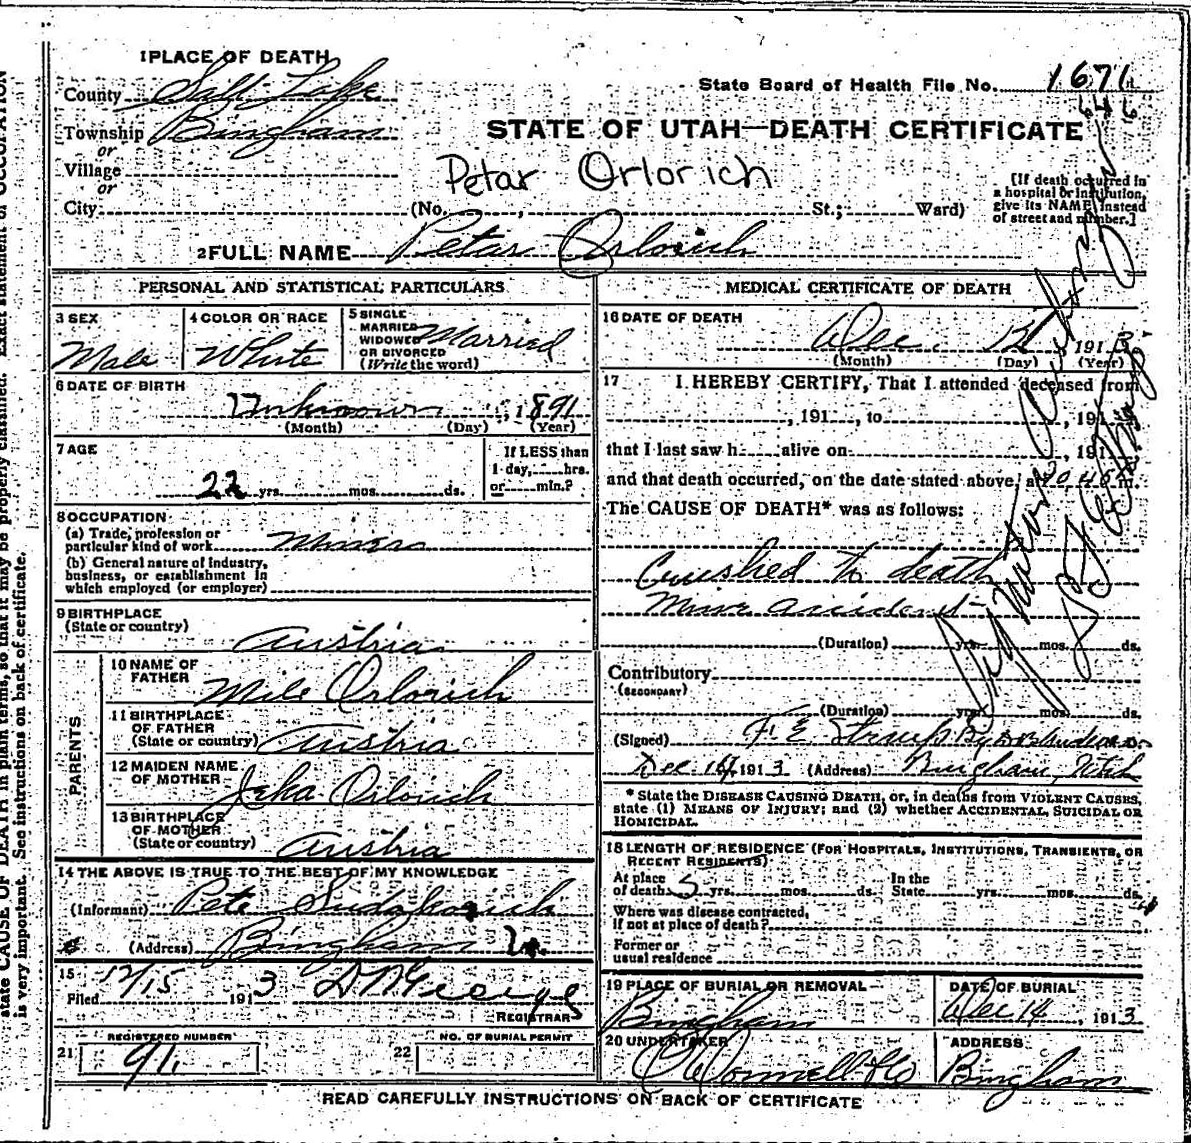 1 PLACE OF DEATH
County Salt Lake
State Board of Health File No. 1671
Township Bingham
or
Village
or
City (No. , St.; Ward)
STATE OF UTAH—DEATH CERTIFICATE
Petar Orlorich
[If death occurred in
a hospital or institution,
give its NAME instead
of street and number.]
2 FULL NAME Petar Orlorich
PERSONAL AND STATISTICAL PARTICULARS
3 SEX
Male
4 COLOR OR RACE
White
5 SINGLE
MARRIED
WIDOWED
OR DIVORCED
(Write the word)
Married
6 DATE OF BIRTH
Unknown , 1891
(Month) (Day) (Year)
7 AGE
22 yrs. mos. ds.
If LESS than
1 day, hrs.
or min.?
8 OCCUPATION
(a) Trade, profession or
particular kind of work Miner
(b) General nature of industry,
business, or establishment in
which employed (or employer)
9 BIRTHPLACE
(State or country)
Austria
PARENTS
10 NAME OF
FATHER
Mile Orlorich
11 BIRTHPLACE
OF FATHER
(State or country) Austria
12 MAIDEN NAME
OF MOTHER
Jeka Orlorich
13 BIRTHPLACE
OF MOTHER
(State or country) Austria
14 THE ABOVE IS TRUE TO THE BEST OF MY KNOWLEDGE
(Informant) Pete
(Address) Bingham
15
Filed 12/15 1913
REGISTRAR
REGISTERED NUMBER
21 91.
NO. OF BURIAL PERMIT
22
MEDICAL CERTIFICATE OF DEATH
16 DATE OF DEATH
Dec. 12 191
(Month) (Day) (Year)
17 I HEREBY CERTIFY, That I attended deceased from
, 191 , to , 191
that I last saw h alive on , 191
and that death occurred, on the date stated above, at m.
The CAUSE OF DEATH* was as follows:
Crushed to death
Mine accident
(Duration) yrs. mos. ds.
Contributory
(SECONDARY)
(Duration) yrs. mos. ds.
(Signed) F. E. Straup By
Dec 14 1913 (Address) Bingham, Utah
* State the DISEASE CAUSING DEATH, or, in deaths from VIOLENT CAUSES,
state (1) MEANS OF INJURY; and (2) whether ACCIDENTAL, SUICIDAL OR
HOMICIDAL.
18 LENGTH OF RESIDENCE (FOR HOSPITALS, INSTITUTIONS, TRANSIENTS, OR
RECENT RESIDENTS)
At place
of death 5 yrs. mos. ds.
In the
State yrs. mos. ds.
Where was disease contracted,
if not at place of death?
Former or
usual residence
19 PLACE OF BURIAL OR REMOVAL
Bingham
DATE OF BURIAL
Dec 14, 1913
20 UNDERTAKER
O'Donnell & Co
ADDRESS
Bingham
READ CAREFULLY INSTRUCTIONS ON BACK OF CERTIFICATE
state CAUSE OF DEATH in plain terms, so that it may be properly classified. Exact statement of OCCUPATION
is very important. See instructions on back of certificate.